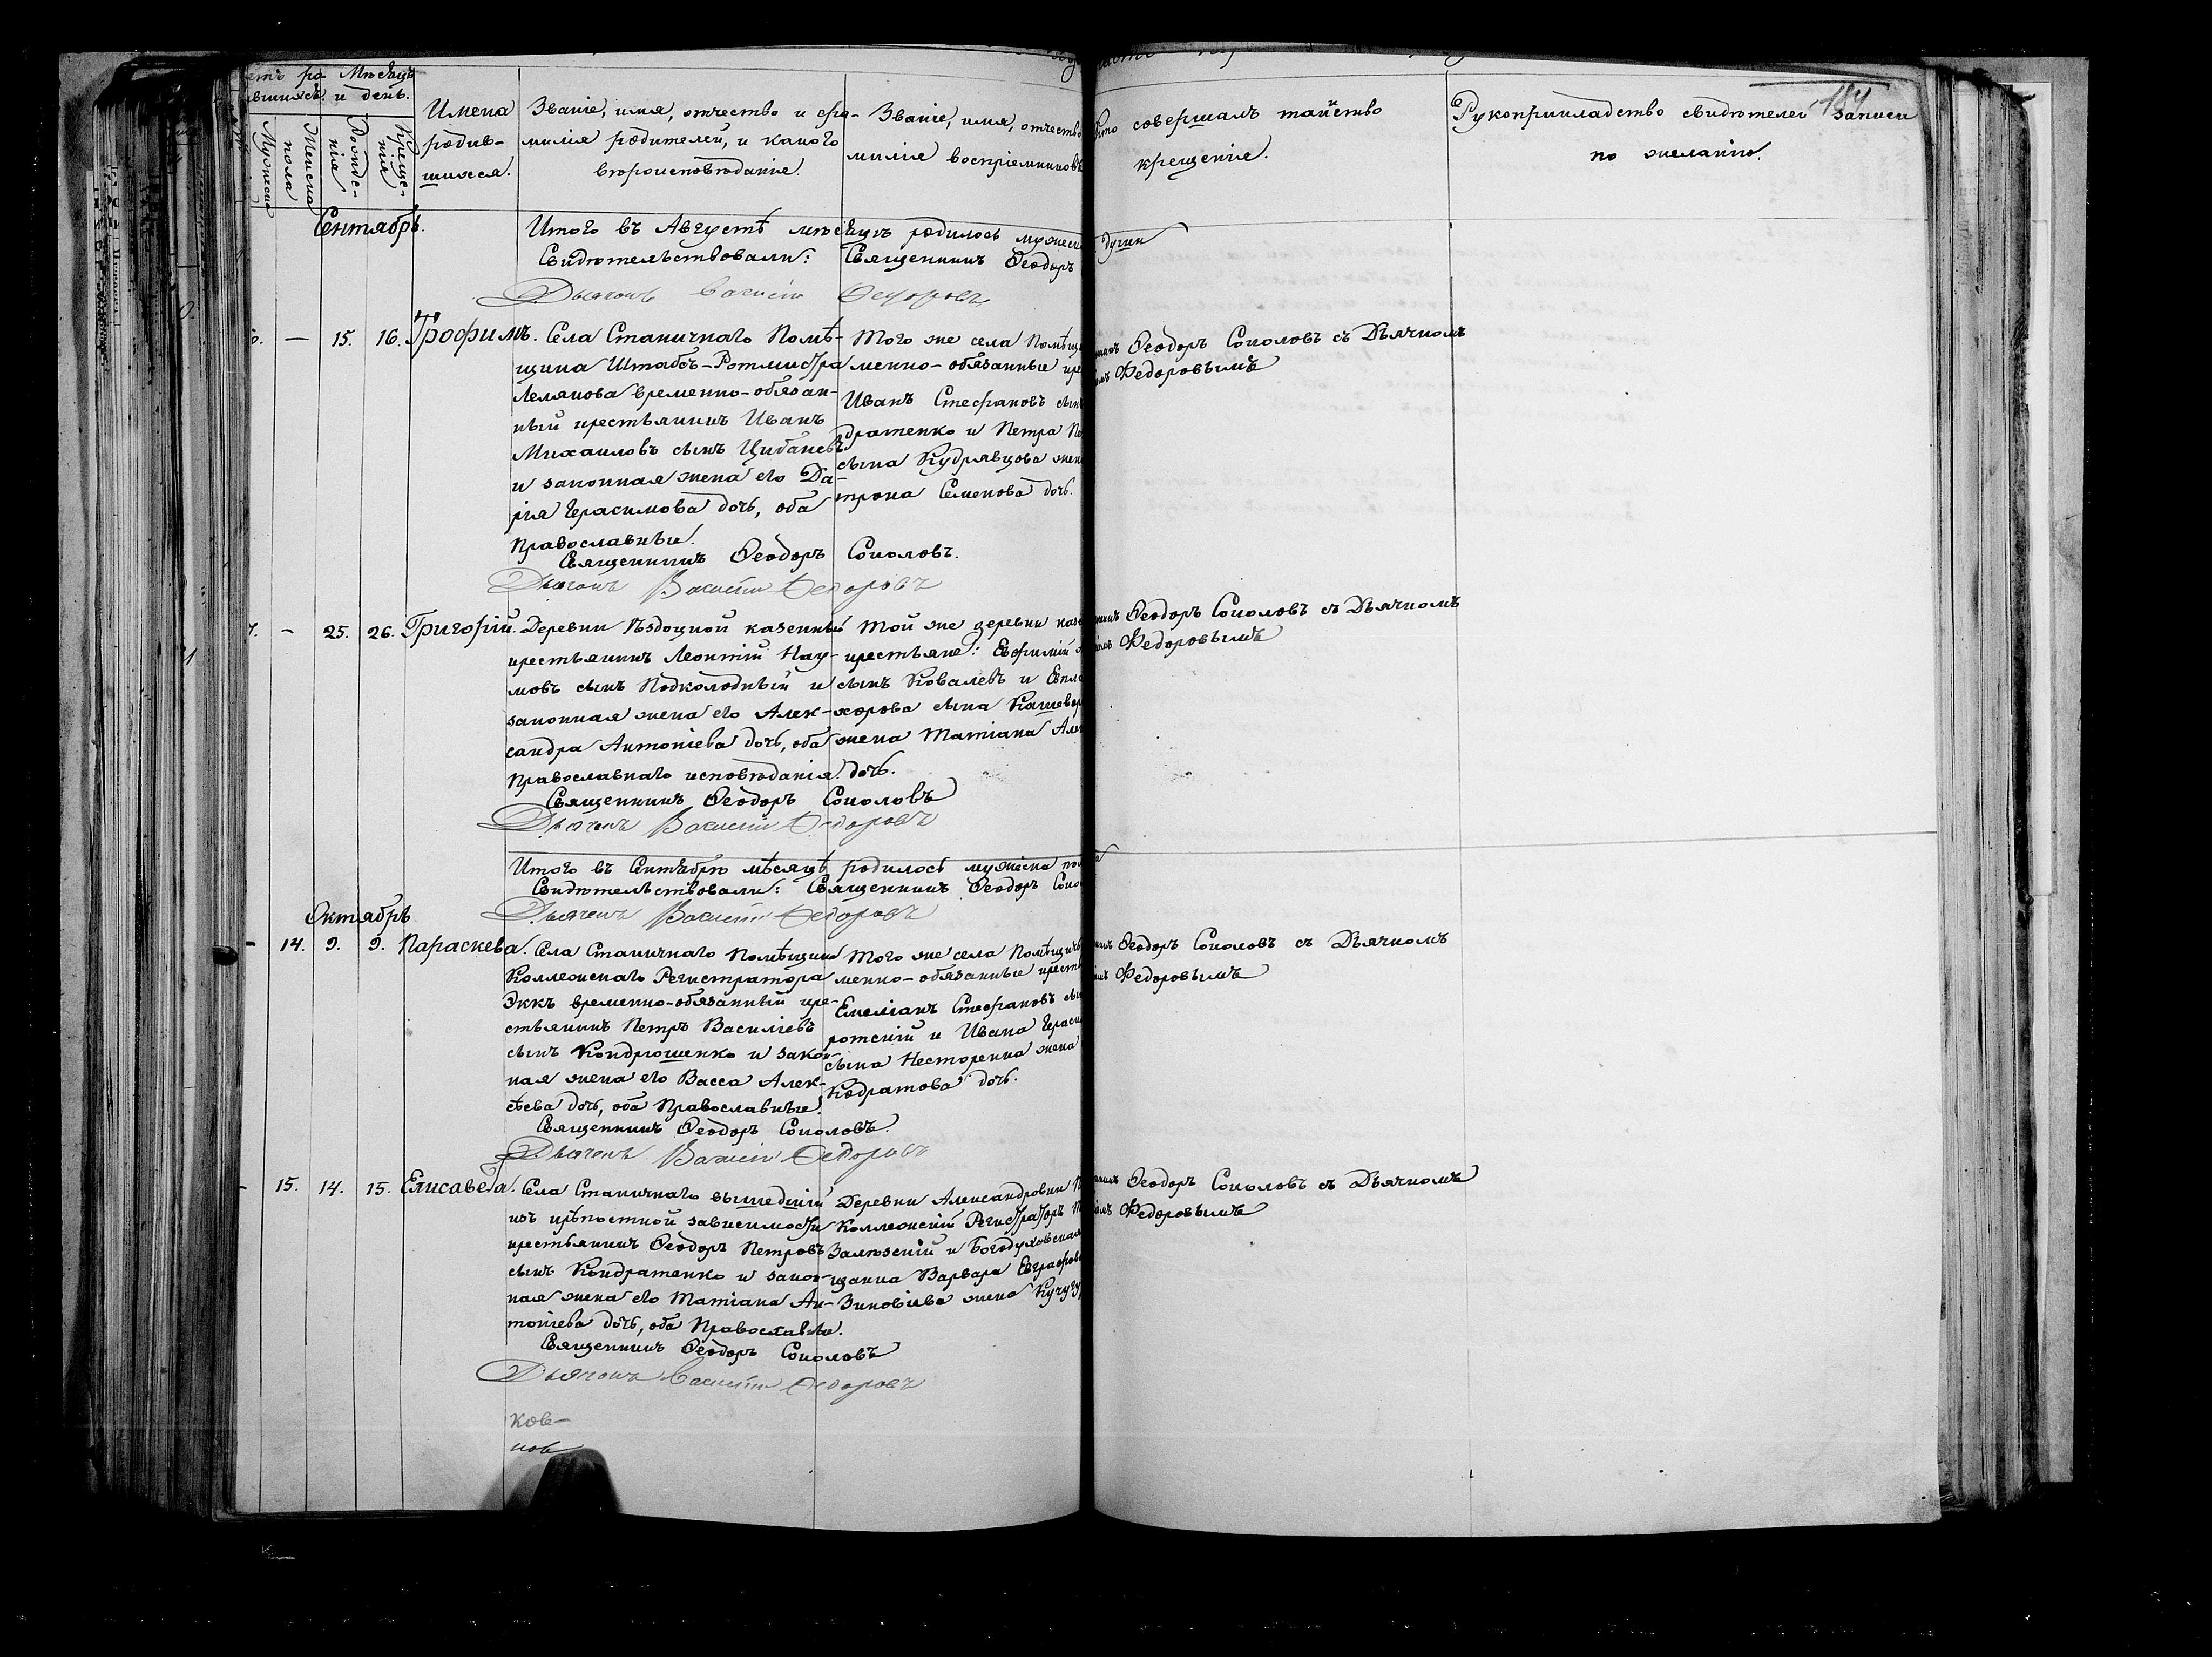 184
Мѣсяцъ
и день.
Мужеска
пола
Женска
Рожде-
нія
Креще-
нія
Имена
родив-
шихся.
Званіе, имя, отчество и фа-
милія родителей, и какого
вѣроисповѣданія.
Званіе, имя, отчество
милія воспріемниковъ
Кто совершалъ таинство
крещенія.
Рукоприкладство свидѣтелей записи
по желанію.
Сентябрь.
Итого въ Августѣ мѣсяцѣ родилось
Свидѣтельствовали: Священникъ Ѳеодоръ
Дьячокъ Василій Ѳедоровъ
— 15. 16. Трофимъ.
Села Станичнаго Помѣ-
щика Штабсъ-Ротмистра
Лелякова временно-обязан-
ный крестьянинъ Иванъ
Михаиловъ сынъ Цибаневъ
и законная жена его Да-
рія Герасимова дочь, оба
Православные.
Того же села
менно-обязанные
Иванъ Стефановъ
дратенко и Петра
сына Кудрявцова
трона Семенова дочь.
Ѳеодоръ Соколовъ съ Дьячкомъ
Ѳедоровымъ
Священникъ Ѳеодоръ Соколовъ.
Дьячокъ Василій Ѳедоровъ
— 25. 26. Григорій.
Деревни Ѣздоцкой казенный
крестьянинъ Леонтій Нау-
мовъ сынъ Подколодный и
законная жена его Алек-
сандра Антоніева дочь, оба
Православнаго исповѣданія.
Той же деревни
крестьяне: Евфимій
сынъ Ковалевъ и
хорова сына
жена Татіана
дочь.
Ѳеодоръ Соколовъ съ Дьячкомъ
Ѳедоровымъ
Священникъ Ѳеодоръ Соколовъ
Дьячокъ Василій Ѳедоровъ
Итого въ Сентябрѣ мѣсяцѣ родилось мужеска
Свидѣтельствовали: Священникъ Ѳеодоръ
Дьячокъ Василій Ѳедоровъ
Октябрь
— 14. 9. 9. Параскева.
Села Станичнаго Помѣщика
Коллежскаго Регистратора
Эккъ временно-обязанный кре-
стьянинъ Петръ Василіевъ
сынъ Кондрюшенко и закон-
ная жена его Васса Алек-
сѣева дочь, оба Православные.
Того же села
менно-обязанные
Емеліанъ Стефановъ
ротскій и Ивана
сына Несторенка жена
Кодратова дочь.
Ѳеодоръ Соколовъ съ Дьячкомъ
Ѳедоровымъ
Священникъ Ѳеодоръ Соколовъ.
Дьячокъ Василій Ѳедоровъ
— 15. 14. 15. Елисавета.
Села Станичнаго вышедшій
изъ крѣпостной зависимости
крестьянинъ Ѳеодоръ Петровъ
сынъ Кондратенко и закон-
ная жена его Татіана Ан-
тоніева дочь, оба Православные.
Деревни Александровки
Коллежскій Регистраторъ
Залѣзскій и Богодуховская
щанка Варвара
Зиновіева жена
Ѳеодоръ Соколовъ съ Дьячкомъ
Ѳедоровымъ
Священникъ Ѳеодоръ Соколовъ
Дьячокъ Василій Ѳедоровъ